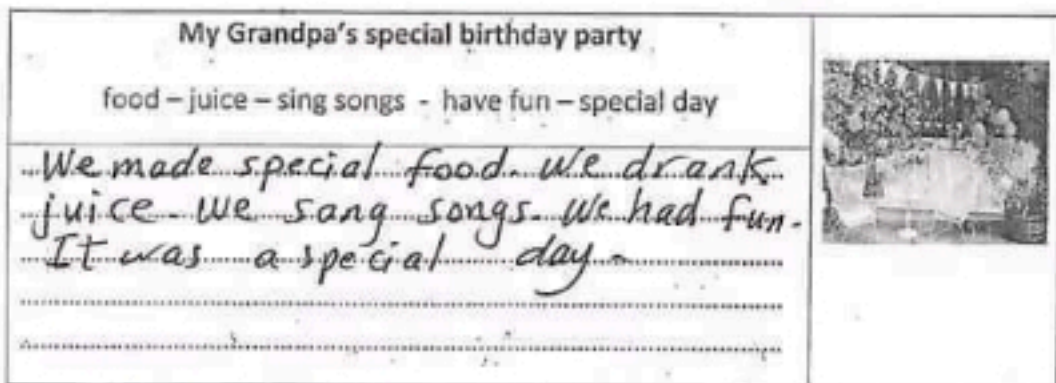 My Grandpa's special birthday party
food – juice – sing songs - have fun – special day
We made special food. We drank
juice. We sang songs. We had fun.
It was a special day.